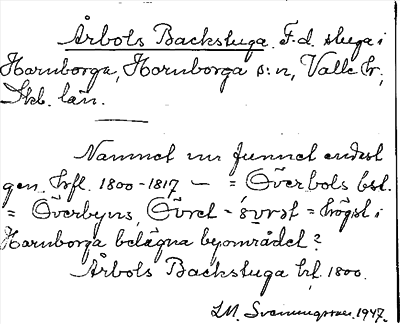 Årbols Backstuga. F.d. stuga i
Hornborga, Hornborga s:n, Valle hd,
Skb. län.
Namnet nu funnet endast
gen. hfl. 1800-1817 — = Överbols bst.
= Överbyns, Övret - = högst i
Hornborga belägna byområdet?
Årbols Backstuga hfl. 1800.
1947.